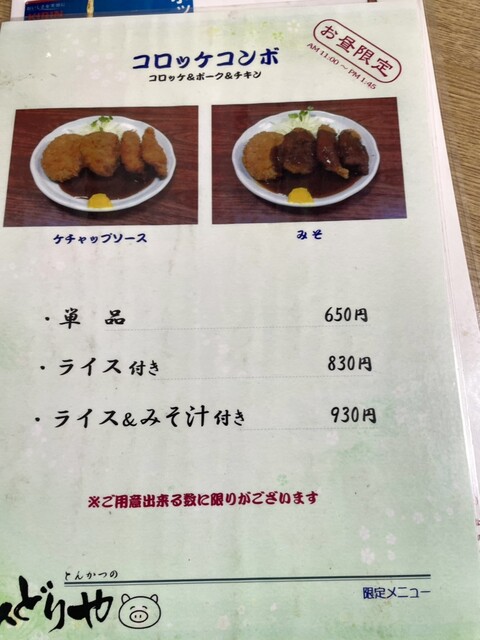 お昼限定
AM 11:00 ～ PM 1:45
コロッケコンボ
コロッケ&ポーク&チキン
ケチャップソース
みそ
・単品 650円
・ライス付き 830円
・ライス&みそ汁付き 930円
※ご用意出来る数に限りがございます
とんかつの
どりや
限定メニュー